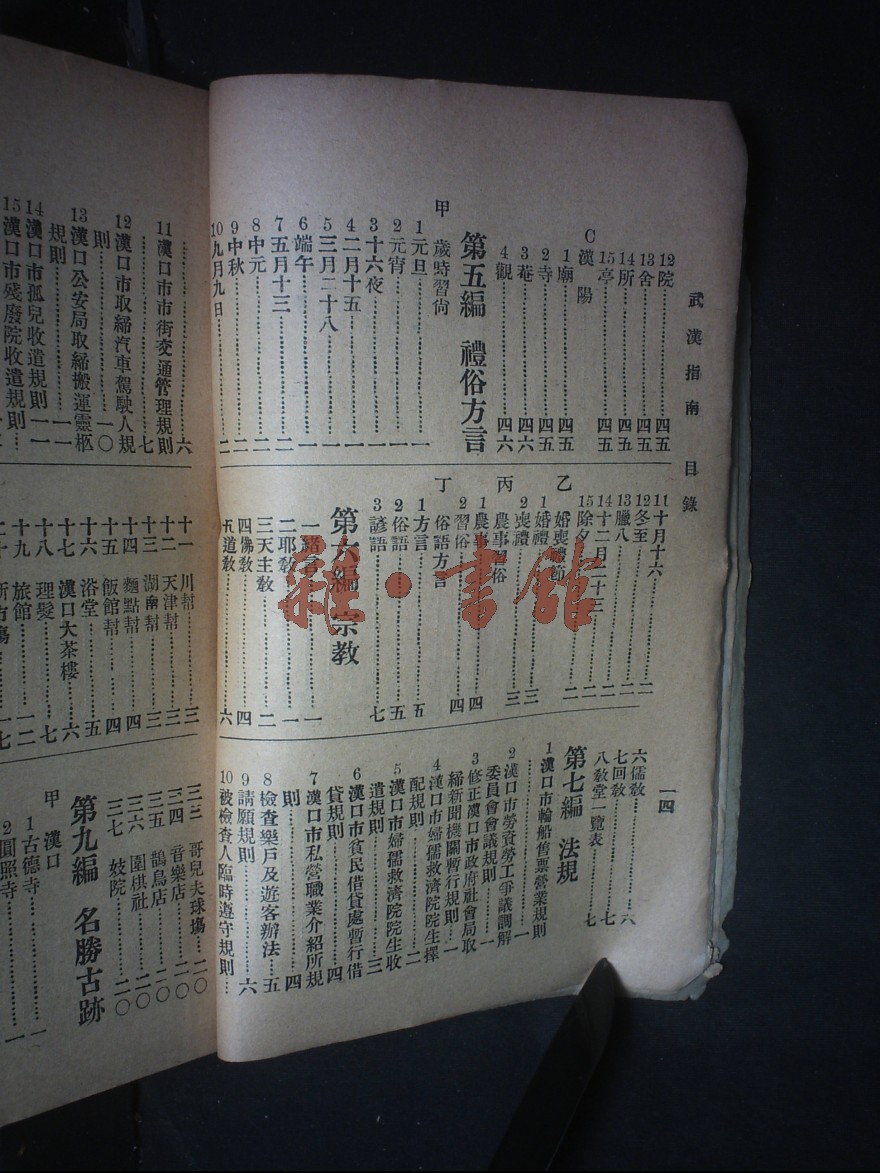 武漢指南 目錄
一四
12院……四五
13舍……四五
14所……四五
15亭……四五
C漢陽
1廟……四五
2寺……四五
3菴……四六
4觀……四六
第五編 禮俗方言
甲 歲時習尚
1元旦……一
2元宵……一
3十六夜……一
4二月十五……一
5三月二十八……一
6端午……一
7五月十三……二
8中元……二
9中秋……二
10九月九日……二
11十月十六……二
12冬至……二
13臘八……二
14十二月二十三……二
15除夕……二
乙 婚喪禮節
1婚禮……三
2喪禮……三
丙 農事習俗
1農事……四
2習俗……四
丁 俗語方言
1方言……五
2俗語……五
3諺語……七
第六編 宗教
一緒言……一
二耶教……一
三天主教……二
四佛教……四
五道教……六
六儒教……六
七回教……七
八教堂一覽表……七
第七編 法規
1漢口市輪船售票營業規則
……一
2漢口市勞資勞工爭議調解
委員會會議規則……一
3修正漢口市政府社會局取
締新聞機關暫行規則……一
4漢口市婦孺救濟院院生擇
配規則……二
5漢口市婦孺救濟院院生收
遣規則……三
6漢口市貧民借貸處暫行借
貸規則……四
7漢口市私營職業介紹所規
則……四
8檢查樂戶及遊客辦法……五
9請願規則……六
10被檢查人臨時遵守規則……
……六
11漢口市市街交通管理規則
……七
12漢口市取締汽車駕駛人規
則……一〇
13漢口公安局取締搬運靈柩
規則……一
14漢口市孤兒收遣規則……一
15漢口市殘廢院收遣規則……
十一 川幇……三
十二 天津幇……三
十三 湖南幇……三
十四 麵點幇……四
十五 飯館幇……四
十六 浴堂……五
十七 漢口大茶樓……六
十八 理髮……七
十九 旅館……一二
三三 哥兒夫球場……二〇
三四 音樂店……二〇
三五 鵲鳥店……二〇
三六 圍棋社……二〇
三七 妓院……二〇
第九編 名勝古跡
甲 漢口
1古德寺……一
2圓照寺……一
雜·書館